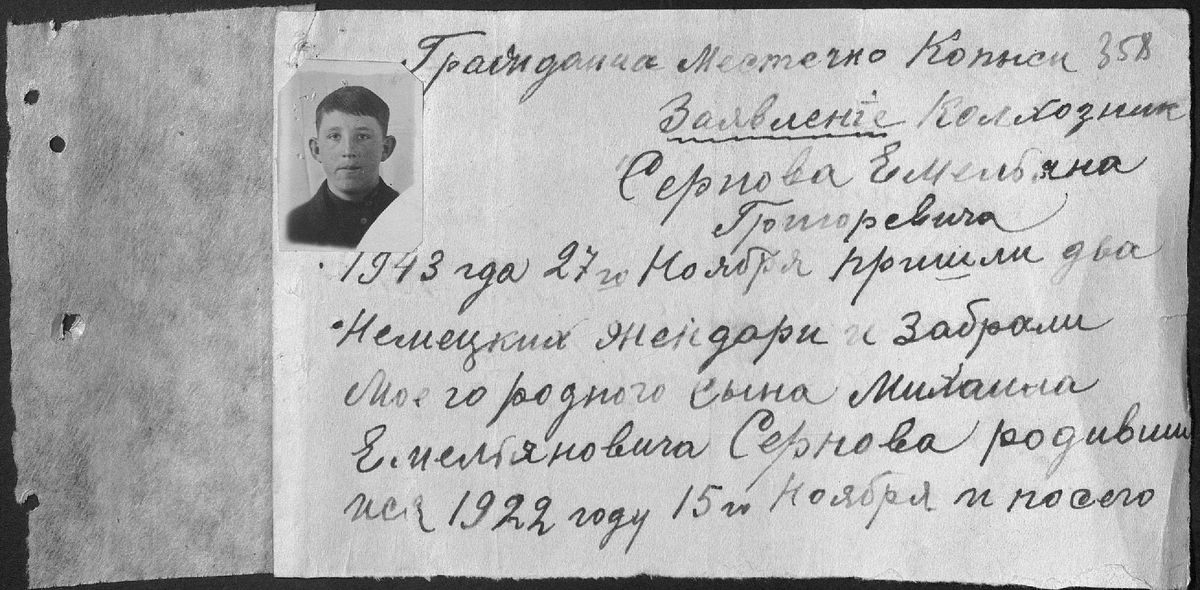 Гражданина Местечко Копыси 358
Заявленіе Колхозник
Сернова Емельяна
Григоревича
1943 гда 27го Ноября пришли два
Немецких жендари и Забрали
Моего родного сына Михаила
Емельяновича Сернова родивши
ися 1922 году 15го Ноября и посего